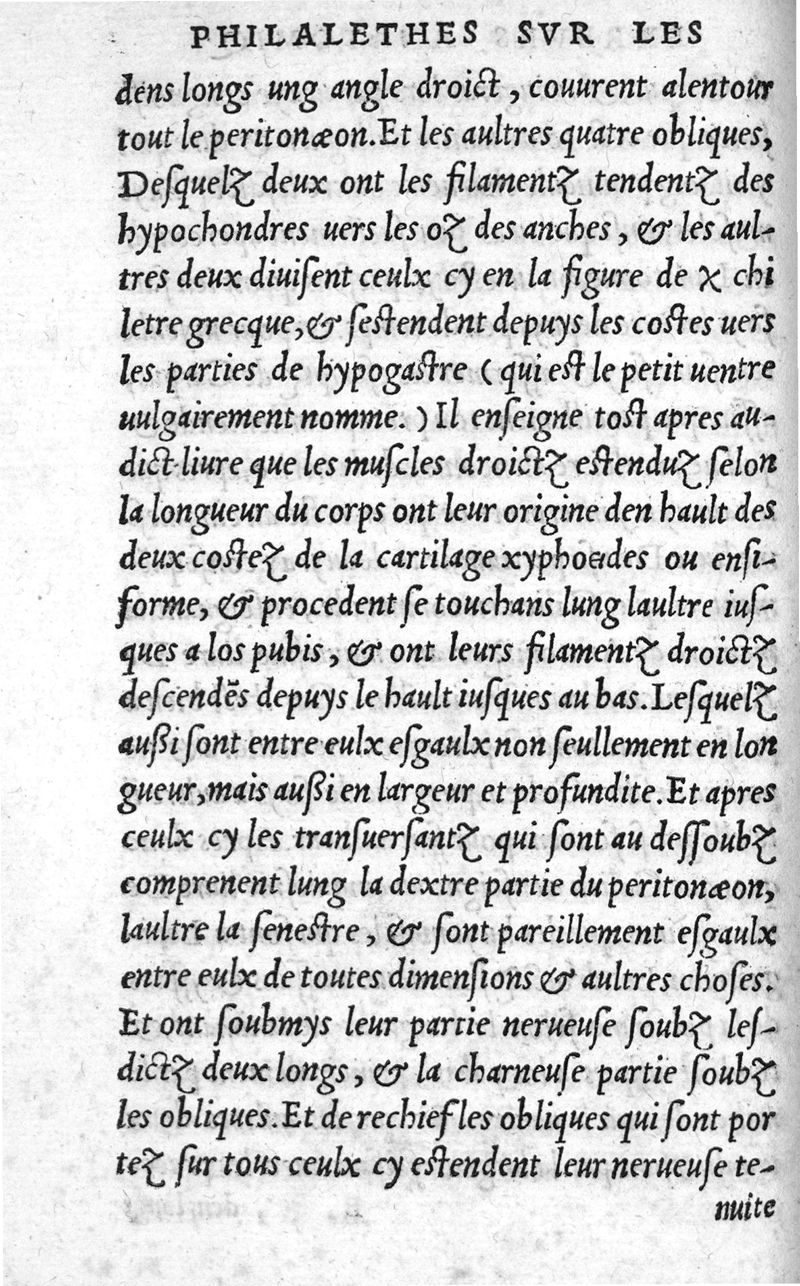 PHILALETHES SVR LES
dens longs ung angle droict, couurent alentour
tout le peritonæon. Et les aultres quatre obliques,
Deſquelz deux ont les filamentz tendentz des
hypochondres uers les oz des anches, & les aul-
tres deux diuiſent ceulx cy en la figure de χ chi
letre grecque, & ſeſtendent depuys les coſtes uers
les parties de hypogaſtre ( qui eſt le petit uentre
uulgairement nomme. ) Il enſeigne toſt apres au-
dict liure que les muſcles droictz eſtenduz ſelon
la longueur du corps ont leur origine den hault des
deux coſtez de la cartilage xyphoedes ou enſi-
forme, & procedent ſe touchans lung laultre iuſ-
ques a los pubis, & ont leurs filamentz droictz
deſcendẽs depuys le hault iuſques au bas. Leſquelz
außi ſont entre eulx eſgaulx non ſeullement en lon
gueur, mais außi en largeur et profundite. Et apres
ceulx cy les tranſuerſantz qui ſont au deſſoubz
comprenent lung la dextre partie du peritonæon,
laultre la ſeneſtre, & ſont pareillement eſgaulx
entre eulx de toutes dimenſions & aultres choſes.
Et ont ſoubmys leur partie nerueuſe ſoubz leſ-
dictz deux longs, & la charneuſe partie ſoubz
les obliques. Et de rechief les obliques qui ſont por
tez ſur tous ceulx cy eſtendent leur nerueuſe te-
nuite